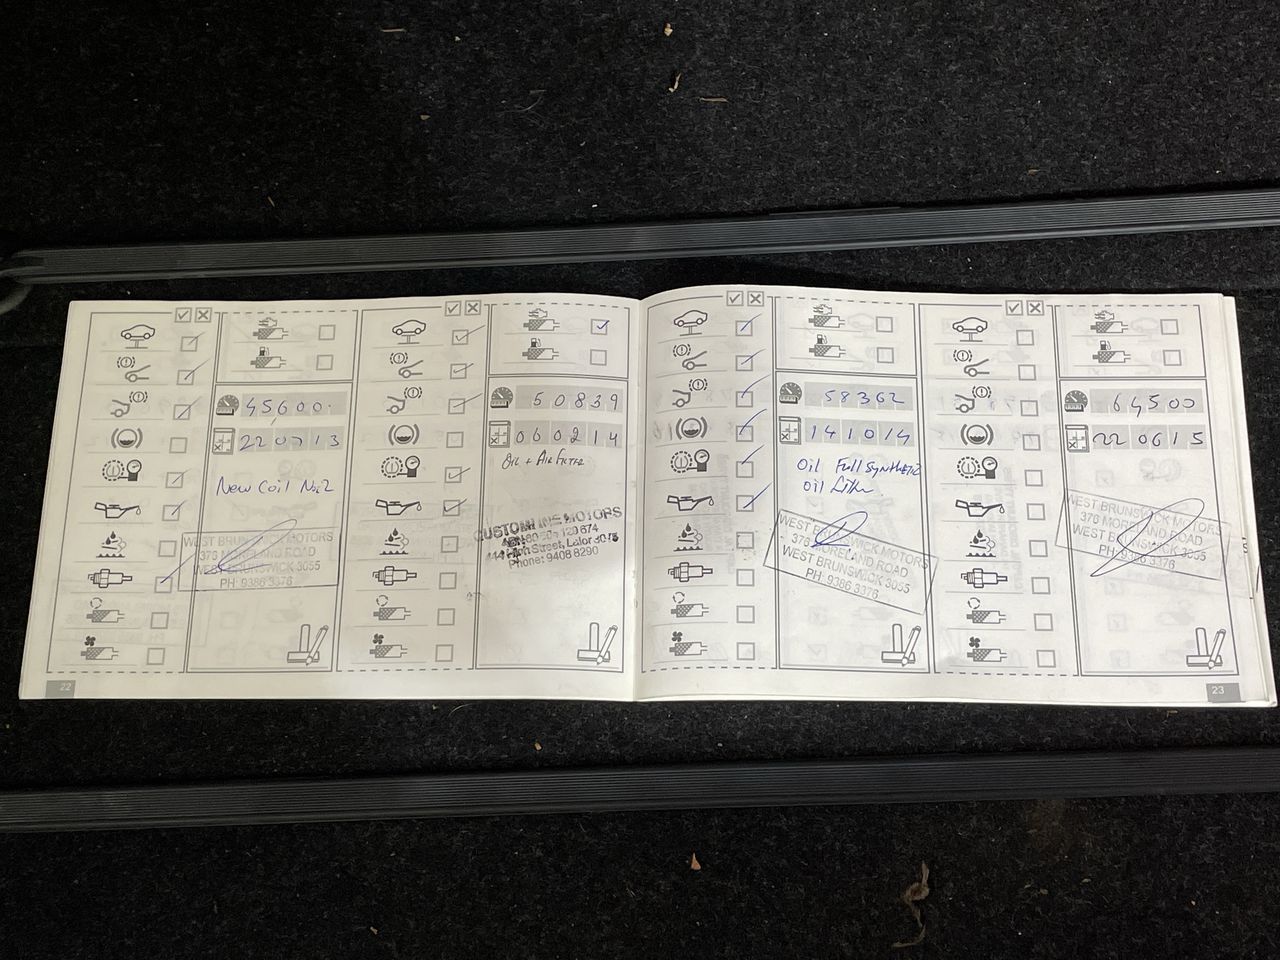 45600
220713
New Coil No.2
WEST BRUNSWICK MOTORS
376 MORELAND ROAD
WEST BRUNSWICK 3055
PH: 9386 3376
22
50839
060214
Oil + Air Filter
CUSTOMLINE MOTORS
444 High Street, Lalor 3075
Phone: 9408 8290
58362
141014
Oil Full Synthetic
Oil
WEST BRUNSWICK MOTORS
376 MORELAND ROAD
WEST BRUNSWICK 3055
PH: 9386 3376
64500
220615
WEST BRUNSWICK MOTORS
376 MORELAND ROAD
WEST BRUNSWICK 3055
PH: 9386 3376
23